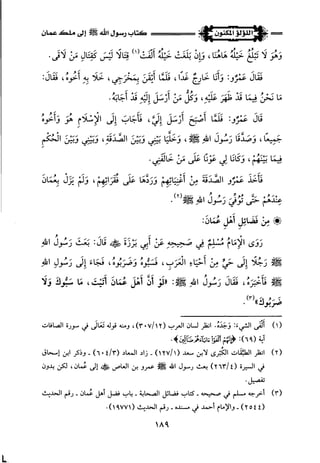 اللؤلؤ المكنون
كتاب رسول الله ﷺ إلى ملك عمان
وَهُوَ لَا تَبْلُغُ خَيْلُهُ هَاهُنَا، وَإِنْ بَلَغَتْ خَيْلُهُ أَلْفَتْ(١) قِتَالًا لَيْسَ كَقِتَالِ مَنْ لَاقَى.
فَقَالَ عَمْرٌو: وَأَنَا خَارِجٌ غَدًا، فَلَمَّا أَيْقَنَ بِمَخْرَجِي، خَلَا بِهِ أَخُوهُ، فَقَالَ:
مَا نَحْنُ فِيمَا قَدْ ظَهَرَ عَلَيْهِ، وَكُلُّ مَنْ أَرْسَلَ إِلَيْهِ قَدْ أَجَابَهُ.
قَالَ عَمْرٌو: فَلَمَّا أَصْبَحَ أَرْسَلَ إِلَيَّ، فَأَجَابَ إِلَى الْإِسْلَامِ هُوَ وَأَخُوهُ
جَمِيعًا، وَصَدَّقَا رَسُولَ اللهِ ﷺ، وَخَلَّيَا بَيْنِي وَبَيْنَ الصَّدَقَةِ، وَبَيْنَ الْحُكْمِ
فِيمَا بَيْنَهُمْ، وَكَانَا لِي عَوْنًا عَلَى مَنْ خَالَفَنِي.
فَأَخَذَ عَمْرٌو الصَّدَقَةَ مِنْ أَغْنِيَائِهِمْ وَرَدَّهَا عَلَى فُقَرَائِهِمْ، وَلَمْ يَزَلْ بِعُمَانَ
عِنْدَهُمْ حَتَّى تُوُفِّيَ رَسُولُ اللهِ ﷺ(٢).
مِنْ فَضَائِلِ أَهْلِ عُمَانَ:
رَوَى الْإِمَامُ مُسْلِمٌ فِي صَحِيحِهِ عَنْ أَبِي بَرْزَةَ ﷺ قَالَ: بَعَثَ رَسُولُ اللهِ
ﷺ رَجُلًا إِلَى حَيٍّ مِنْ أَحْيَاءِ الْعَرَبِ، فَسَبُّوهُ وَضَرَبُوهُ، فَجَاءَ إِلَى رَسُولِ اللهِ
ﷺ فَأَخْبَرَهُ، فَقَالَ رَسُولُ اللهِ ﷺ: «لَوْ أَنَّ أَهْلَ عُمَانَ أَتَيْتَ، مَا سَبُّوكَ وَلَا
ضَرَبُوكَ»(٣).
(١) أَلْفَى الشيءَ: وَجَدَهُ. انظر لسان العرب (٣٠٧/١٢)، ومنه قوله تَعَالَى في سورة الصافات
آية (٦٩): ﴿إِنَّهُمْ أَلْفَوْا آبَاءَهُمْ ضَالِّينَ﴾.
(٢) انظر الطَّبَقَات الكُبْرَى لابن سعد (١٢٧/١) - زاد المعاد (٦٠٤/٣) - وذكر ابن إسحاق
في السيرة (٢٦٣/٤) بعث رسول الله ﷺ عمرو بن العاص ﷺ إلى عُمان، لكن بدون
تفصيل.
(٣) أخرجه مسلم في صحيحه - كتاب فضائل الصحابة - باب فضل أهل عُمان - رقم الحديث
(٢٥٤٤) - والإمام أحمد في مسنده - رقم الحديث (١٩٧٧١).
١٨٩